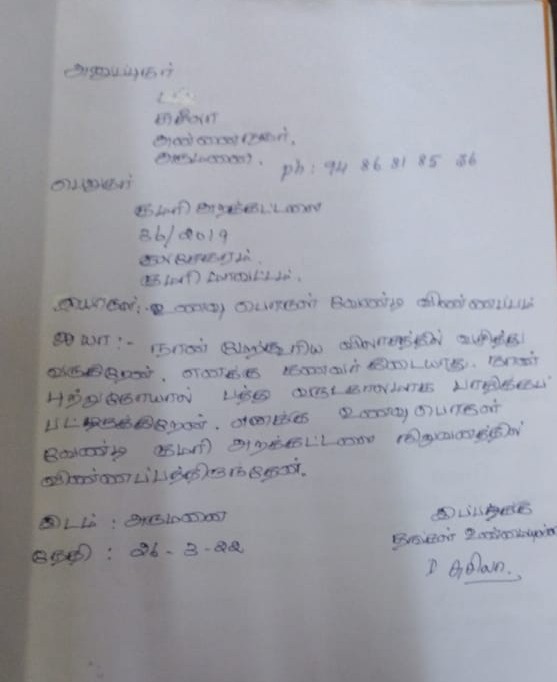 அனுப்புநர்
சுசிலா
அண்ணாநகர்,
அருமனை. ph: 94 86 81 85 36
பெறுநர்
குமரி அறக்கட்டளை
36/2019
குமரி மாவட்டம்.
பொருள்:- உணவு பொருள் வேண்டி விண்ணப்பம்
ஐயா:- நான் மேற்கூறிய விலாசத்தில் வசித்து
வருகிறேன். எனக்கு கணவர் கிடையாது. நான்
புற்றுநோயால் பத்து வருடகாலமாக பாதிக்கப்
பட்டிருக்கிறேன். எனக்கு உணவு பொருள்
வேண்டி குமரி அறக்கட்டளை நிறுவனத்தில்
விண்ணப்பத்திருந்தேன்.
இடம் : அருமனை
தேதி : 26 - 3 - 22
இப்படிக்கு
தங்கள் உண்மையுள்ள
D சுசிலா.